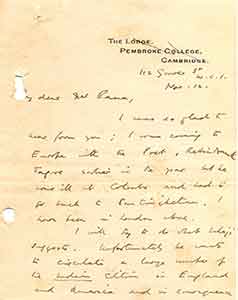 THE LODGE,
PEMBROKE COLLEGE,
CAMBRIDGE.
112 Gower St
W.C.1.
Nov. 12.
My dear Mr Rama,
I was so glad to
hear from you; I was coming to
Europe with the Poet, Rabindranath
Tagore earlier in the year but he
was ill at Colombo and had to
go back to Santiniketan. I
have been in London alone.
I will try to do what
suggests. Unfortunately he wants
to circulate a large number of
the Indian Edition in England
and America and in consequence